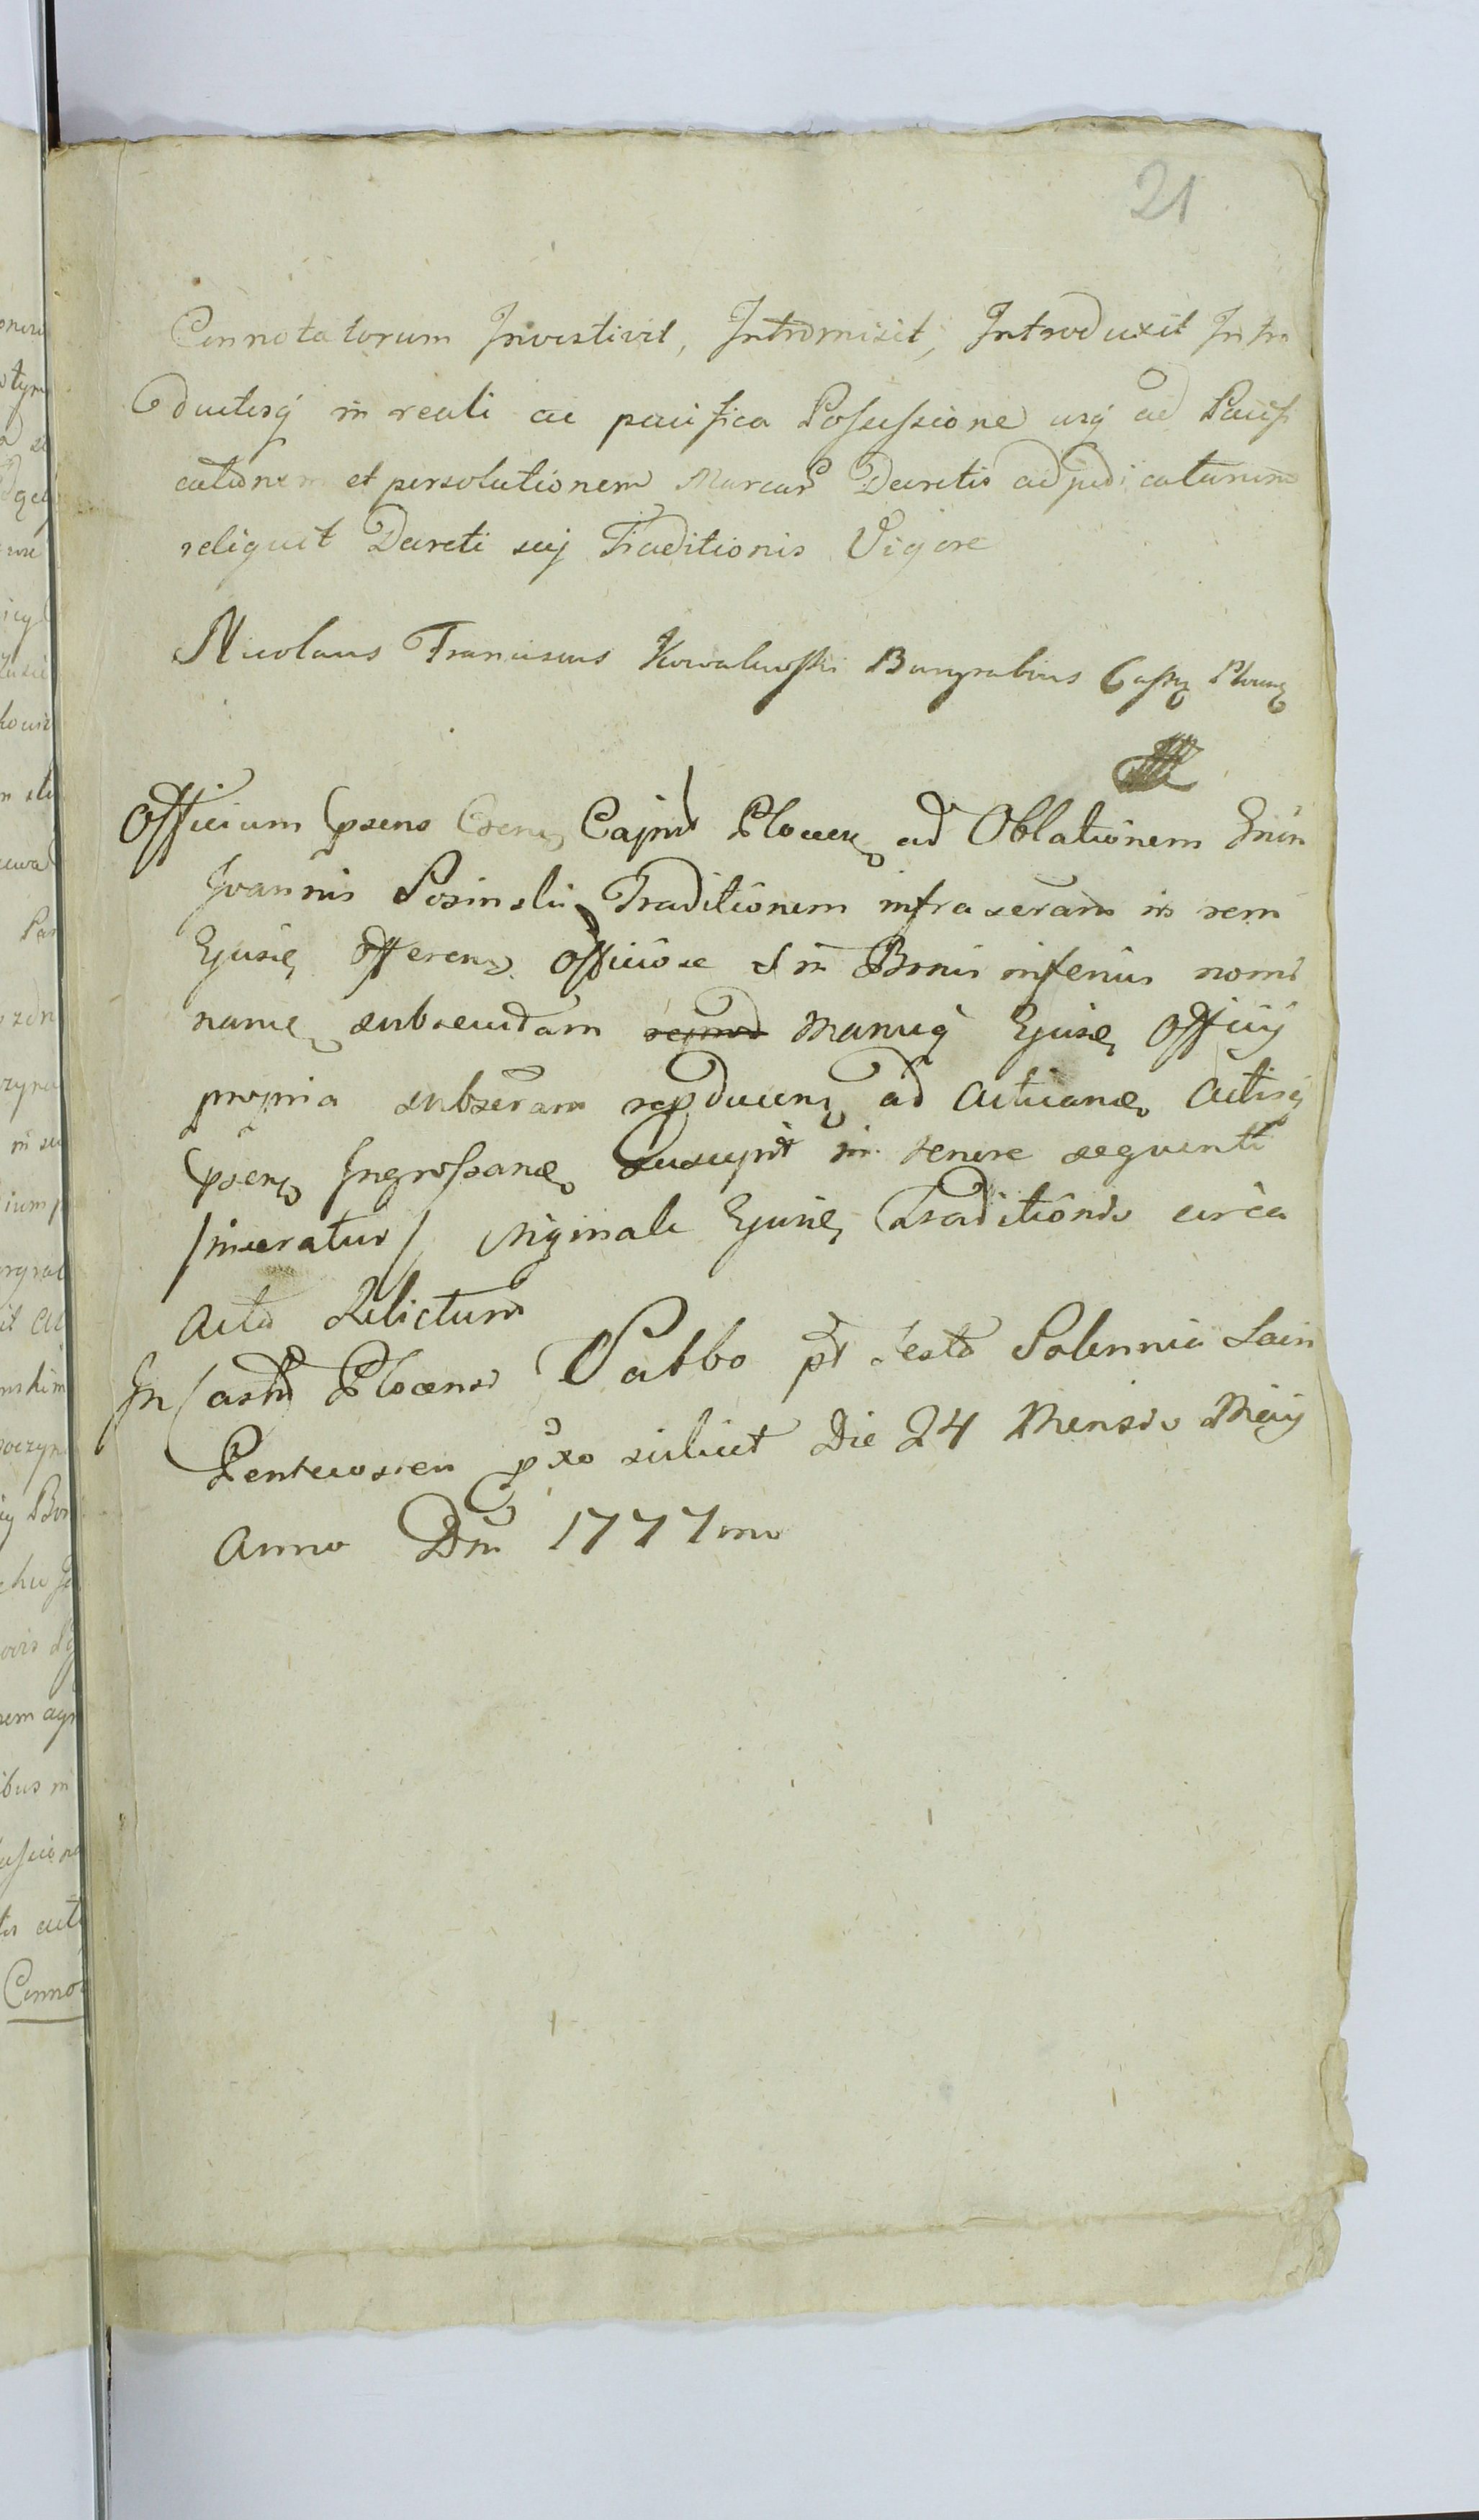 21
Connotatorum Investivit, Intromisit, Introduxit Intro
ductosq in reali ac pacifica Possessione usq ad Pacifi
cationem et persolutionem Marcar Decretis adjudicatarum
reliquit Decreti suj Traditionis Vigore
Nicolaus Franciscus Kowalewski Burgrabius Capt Plocen
Officium psens Capit Plocen ad Oblationem
Joannis Posinski Traditionem infrascram in rem
Ejusd offeren Officiose in Bonis inferius nomi
nan subsecutam Manuq Ejusd Officij
propria subscram repducen ad acticand actisq
psen Ingrossand Suscepit in tenore sequenti
/inseratur/ originali Ejusd Traditionis circa
acta Relictum
In Castro Plocensi Sabbo pt Festa Solennia Sacri
Pentecosten pxo scilicet Die 24 Mensis Maij
Anno Dni 1777mo
onere
Par
ibus in
Conno